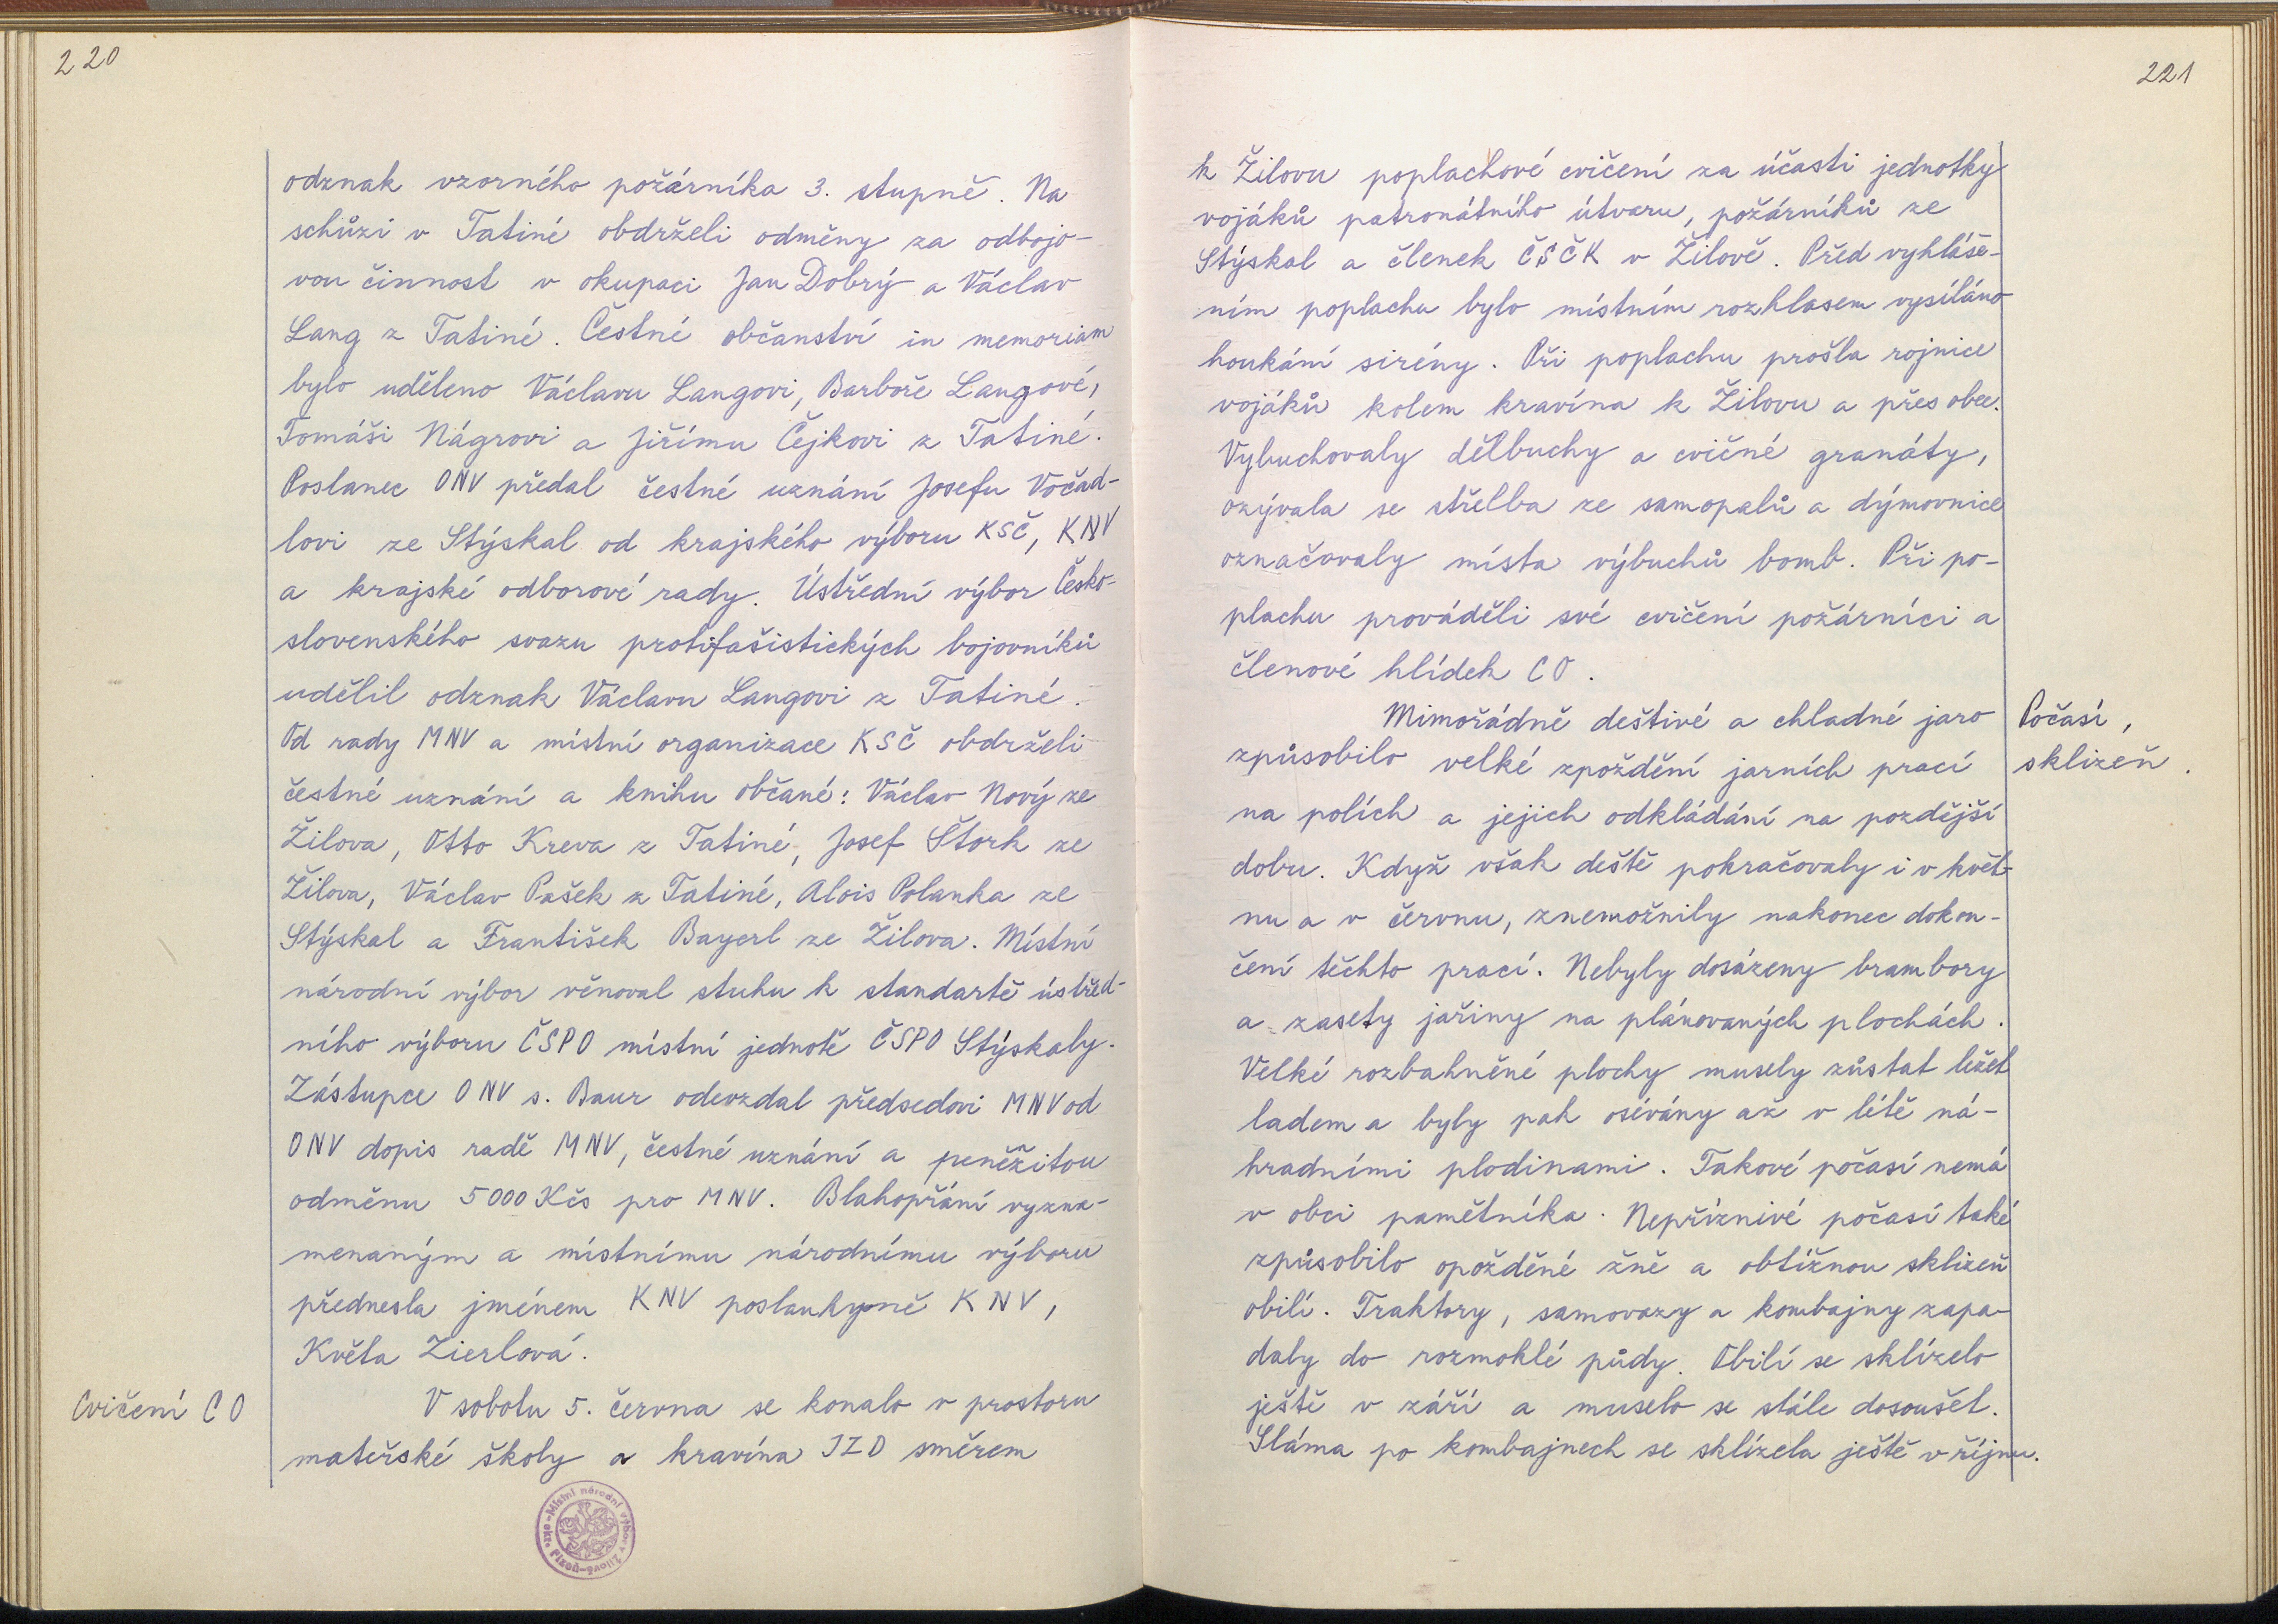 220
odznak vzorného požárníka 3. stupně. Na
schůzi v Tatiné obdrželi odměny za odbojo-
vou činnost v okupaci Jan Dobrý a Václav
Lang z Tatiné. Čestné občanství in memoriam
bylo uděleno Václavu Langovi, Barboře Langové,
Tomáši Nágrovi a Jiřímu Čejkovi z Tatiné.
Poslanec ONV předal čestné uznání Josefu Vočad-
lovi ze Stýskal od krajského výboru KSČ, KNV
a krajské odborové rady. Ústřední výbor Česko-
slovenského svazu protifašistických bojovníků
udělil odznak Václavu Langovi z Tatiné.
Od rady MNV a místní organizace KSČ obdrželi
čestné uznání a knihu občané: Václav Nový ze
Žilova, Otto Kreva z Tatiné, Josef Štork ze
Žilova, Václav Pašek z Tatiné, Alois Polanka ze
Stýskal a František Bayerl ze Žilova. Místní
národní výbor věnoval stuhu k standartě ústřed-
ního výboru ČSPO místní jednotě ČSPO Stýskaly.
Zástupce ONV s. Baur odevzdal předsedovi MNV od
ONV dopis radě MNV, čestné uznání a peněžitou
odměnu 5000 Kčs pro MNV. Blahopřání vyzna-
menaným a místnímu národnímu výboru
přednesla jménem KNV poslankyně KNV,
Květa Zierlová.
Cvičení CO
V sobotu 5. června se konalo v prostoru
mateřské školy a kravína JZD směrem
Místní národní výbor v Žilově
okr. Plzeň
221
k Žilovu poplachové cvičení za účasti jednotky
vojáků patronátního útvaru, požárníků ze
Stýskal a členek ČSČK v Žilově. Před vyhláše-
ním poplachu bylo místním rozhlasem vysíláno
houkání sirény. Při poplachu prošla rojnice
vojáků kolem kravína k Žilovu a přes obec.
Vybuchovaly dělbuchy a cvičné granáty,
ozývala se střelba ze samopalů a dýmovnice
označovaly místa výbuchů bomb. Při po-
plachu prováděli své cvičení požárníci a
členové hlídek CO.
Mimořádně deštivé a chladné jaro
Počasí,
způsobilo velké zpoždění jarních prací
sklizeň.
na polích a jejich odkládání na pozdější
dobu. Když však deště pokračovaly i v květ-
nu a v červnu, znemožnily nakonec dokon-
čení těchto prací. Nebyly dosázeny brambory
a zasety jařiny na plánovaných plochách.
Velké rozbahněné plochy musely zůstat ležet
ladem a byly pak osévány až v létě ná-
hradními plodinami. Takové počasí nemá
v obci pamětníka. Nepříznivé počasí také
způsobilo opožděné žně a obtížnou sklizeň
obilí. Traktory, samovazy a kombajny zapa-
daly do rozmoklé půdy. Obilí se sklízelo
ještě v září a muselo se stále dosoušet.
Sláma po kombajnech se sklízela ještě v říjnu.